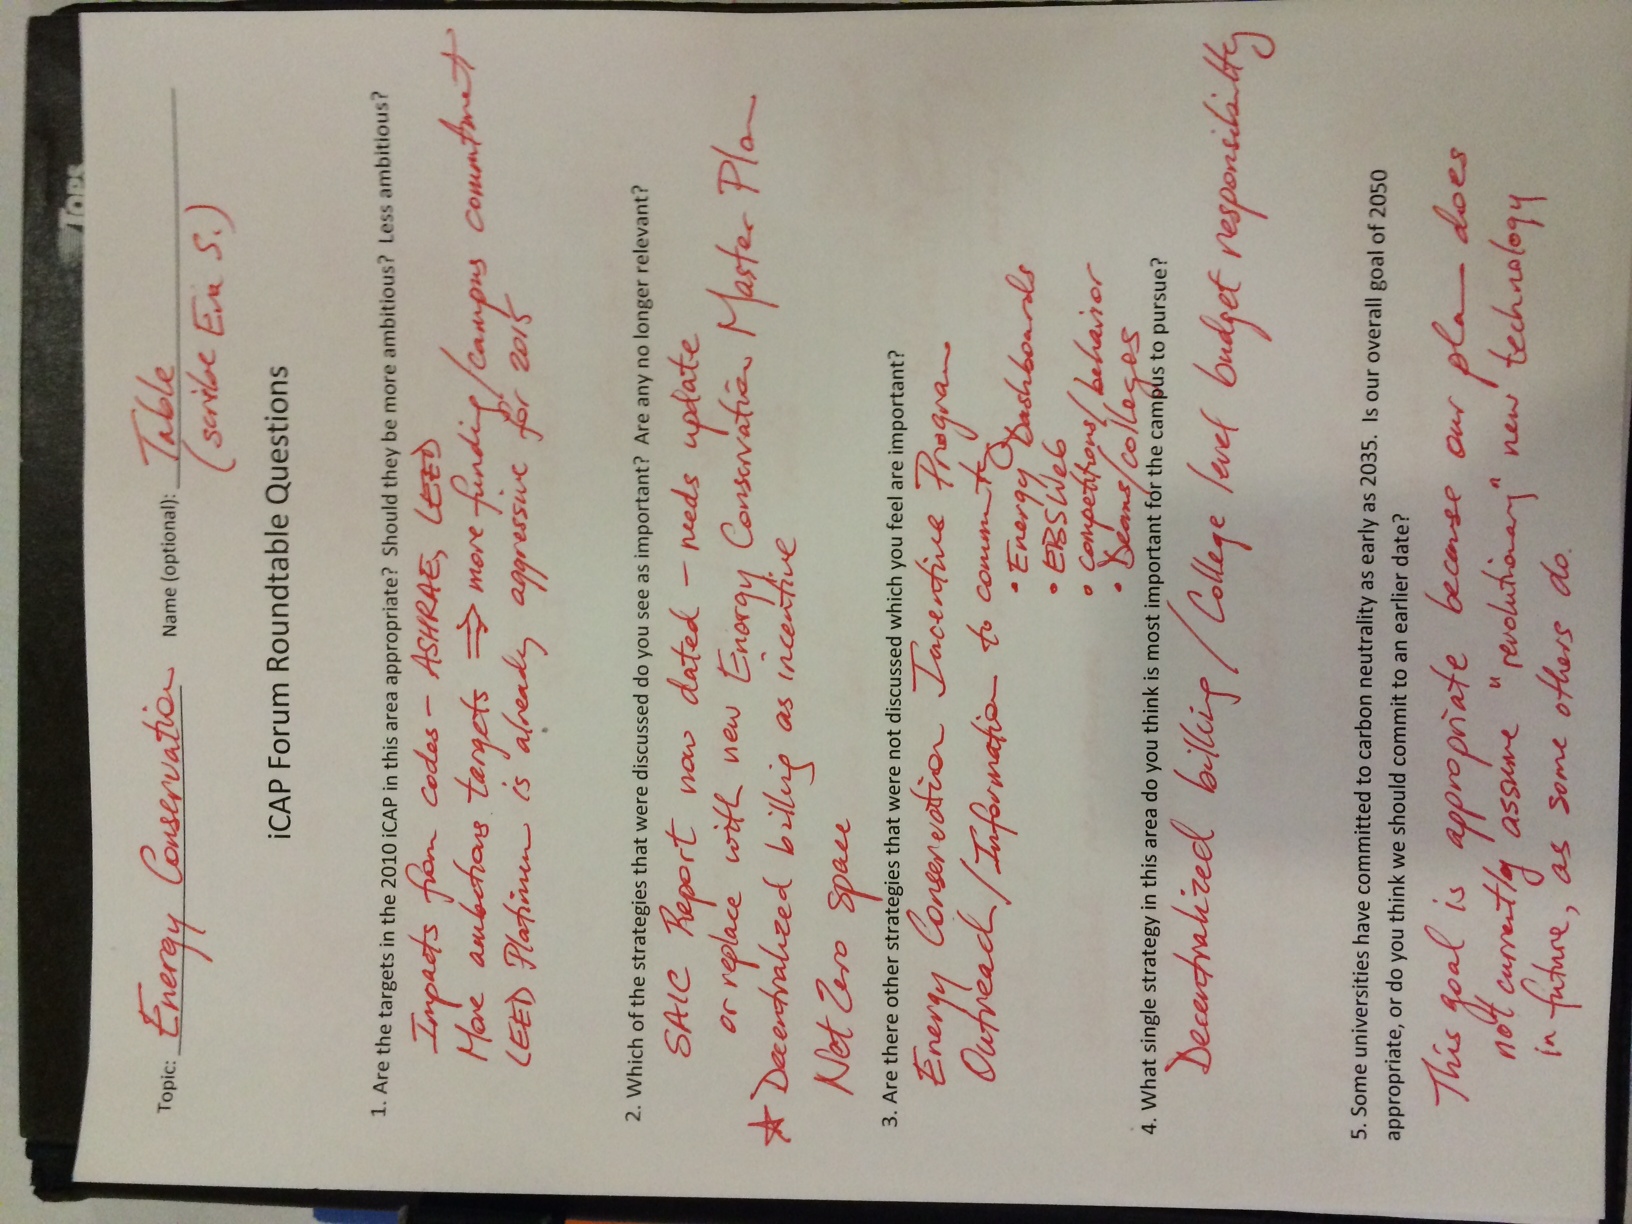 TOPS
Topic: Energy Conservation Name (optional): Table
(scribe Eva S.)
iCAP Forum Roundtable Questions
1. Are the targets in the 2010 iCAP in this area appropriate? Should they be more ambitious? Less ambitious?
Impacts from codes - ASHRAE, LEED
More ambitious targets ⇒ more funding/campus commitment
LEED Platinum is already aggressive for 2015
2. Which of the strategies that were discussed do you see as important? Are any no longer relevant?
SAIC Report now dated - needs update
or replace with new Energy Conservation Master Plan
★ Decentralized billing as incentive
Net Zero Space
3. Are there other strategies that were not discussed which you feel are important?
Energy Conservation Incentive Program
Outreach/Information to community
• Energy Dashboards
• EBSWeb
• competitions/behavior
• Deans/colleges
4. What single strategy in this area do you think is most important for the campus to pursue?
Decentralized billing/College level budget responsibility
5. Some universities have committed to carbon neutrality as early as 2035. Is our overall goal of 2050
appropriate, or do you think we should commit to an earlier date?
This goal is appropriate because our plan does
not currently assume "revolutionary" new technology
in future, as some others do.